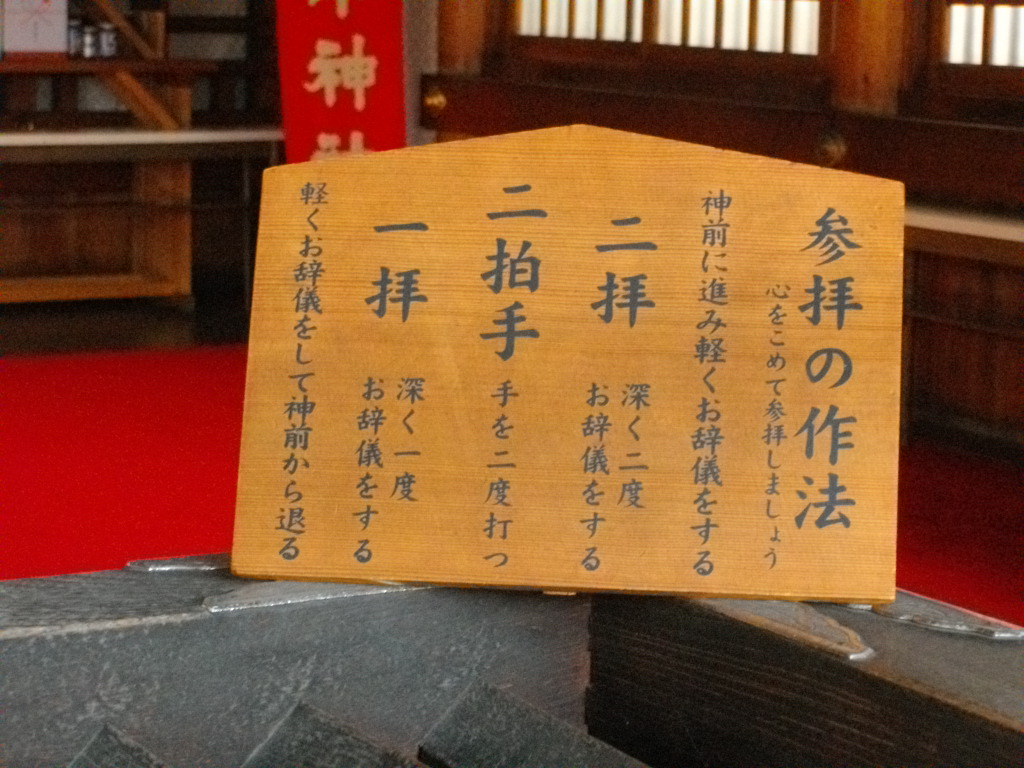 参拝の作法
心をこめて参拝しましょう
神前に進み軽くお辞儀をする
二拝
深く二度
お辞儀をする
二拍手
手を二度打つ
一拝
深く一度
お辞儀をする
軽くお辞儀をして神前から退る
神